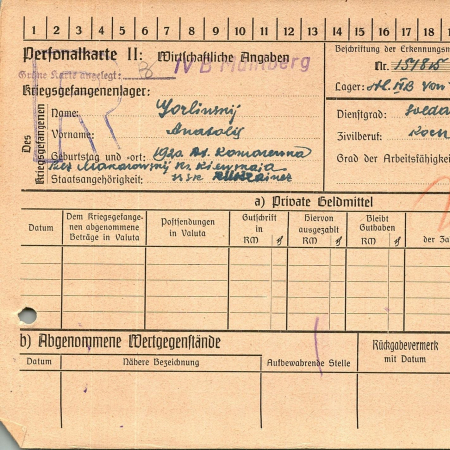 1 2 3 4 5 6 7 8 9 10 11 12 13 14 15 16 17 18
Personalkarte II: Wirtschaftliche Angaben
Beschriftung der Erkennungsm
Grüne Karte angelegt: IV B Mühlberg
Nr. 151815
Kriegsgefangenenlager:
Lager: IV B
Des Kriegsgefangenen
Name: Gorlinskij
Dienstgrad: Solda
Vorname: Anatolij
Zivilberuf:
Geburtstag und -ort: 1920
Grad der Arbeitsfähigkei
Makarowskij Kiewskaja
Staatsangehörigkeit: Ukrainer
a) Private Geldmittel
Datum
Dem Kriegsgefange-
nen abgenommene
Beträge in Valuta
Postsendungen
in Valuta
Gutschrift
in
RM ₰
Hiervon
ausgezahlt
RM ₰
Bleibt
Guthaben
RM ₰
der Za
b) Abgenommene Wertgegenstände
Datum
Nähere Bezeichnung
Aufbewahrende Stelle
Rückgabevermerk
mit Datum